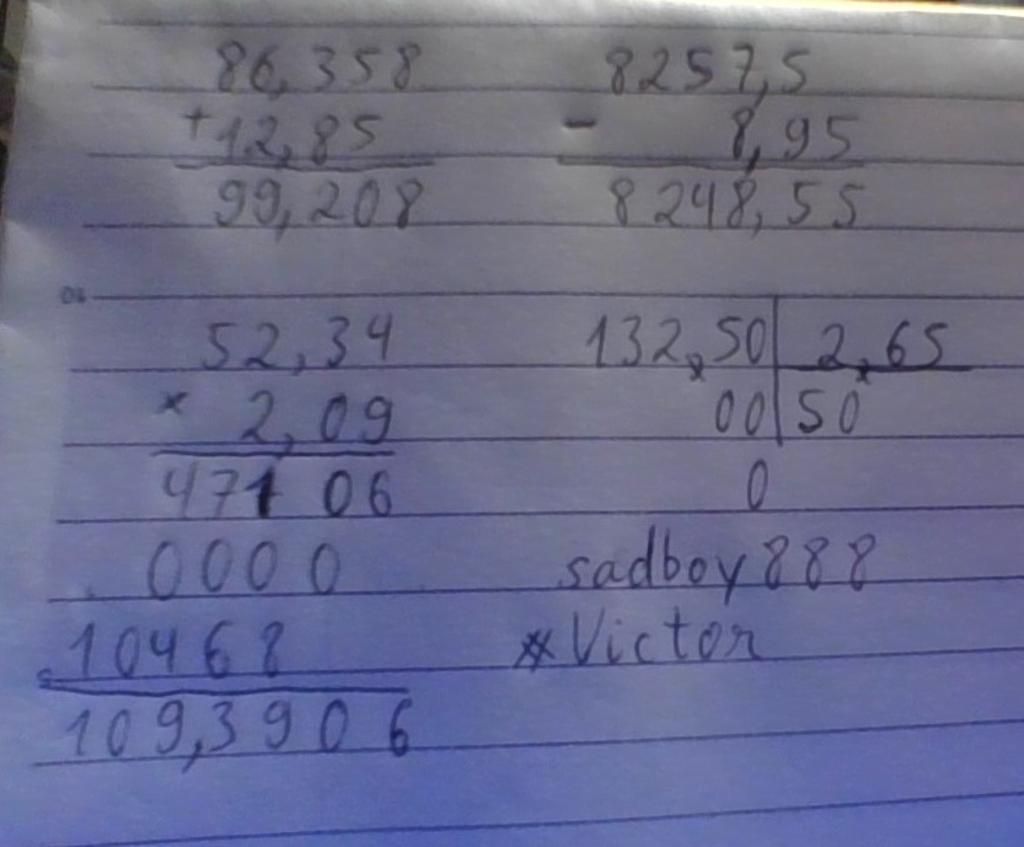 86,358
+12,85
99,208
8257,5
- 8,95
8248,55
52,34
× 2,09
471 06
0000
10468
109,3906
132,50 2,65
00 50
0
sadboy888
*Victor